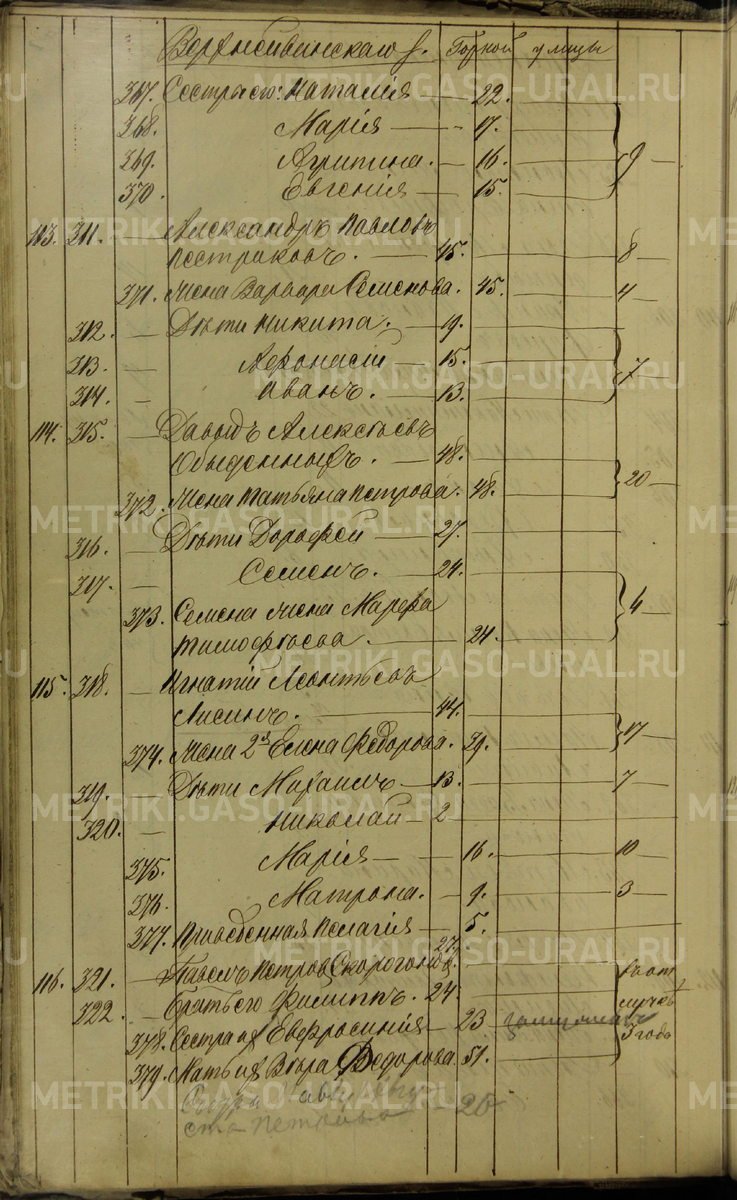 Верхнсивинскаго Горной улицы
367. Сестры его: Наталія — 22.
368. Марія — 17.
369. Агрипина. — 16. 9 —
370. Евгенія — 15.
113. 311. — Александръ Павловъ
Пестриковъ. — 45. 8 —
371. Жена Варвара Семенова. 45. 4 —
312. — Дѣти Никита. — 19.
313. — Афонасій — 15. 7 —
314. — Иванъ. — 13.
114. 315. — Давыдъ Алексѣевъ
Обыденныхъ. — 48.
372. Жена Татьяна Петрова. 48. 20 —
316. — Дѣти Дорофей — 27.
317. — Семенъ. — 24.
373. Семена жена Марфа 4 —
Тимофѣева. — 24.
115. 318. — Игнатій Леонтьевъ
Лисинъ. — 44.
374. Жена 2я Елена Федорова. 39. 17 —
319. — Дѣти Михаилъ — 13. 7 —
320. — Николай — 2
375. Марія — 16. 10 —
376. Матрона. — 9. 3 —
377. Приведенная Пелагія — 5.
116. 321. — Павелъ Петровъ Скорогоновъ. 27.
322. — Братъ его Филиппъ. 24.
378. Сестра их Евфросинія — 23 3 года
379. Мать их Вѣра Федорова. 51.
Авгу
ста Петрова — 20
METRIKI.GASO-URAL.RU